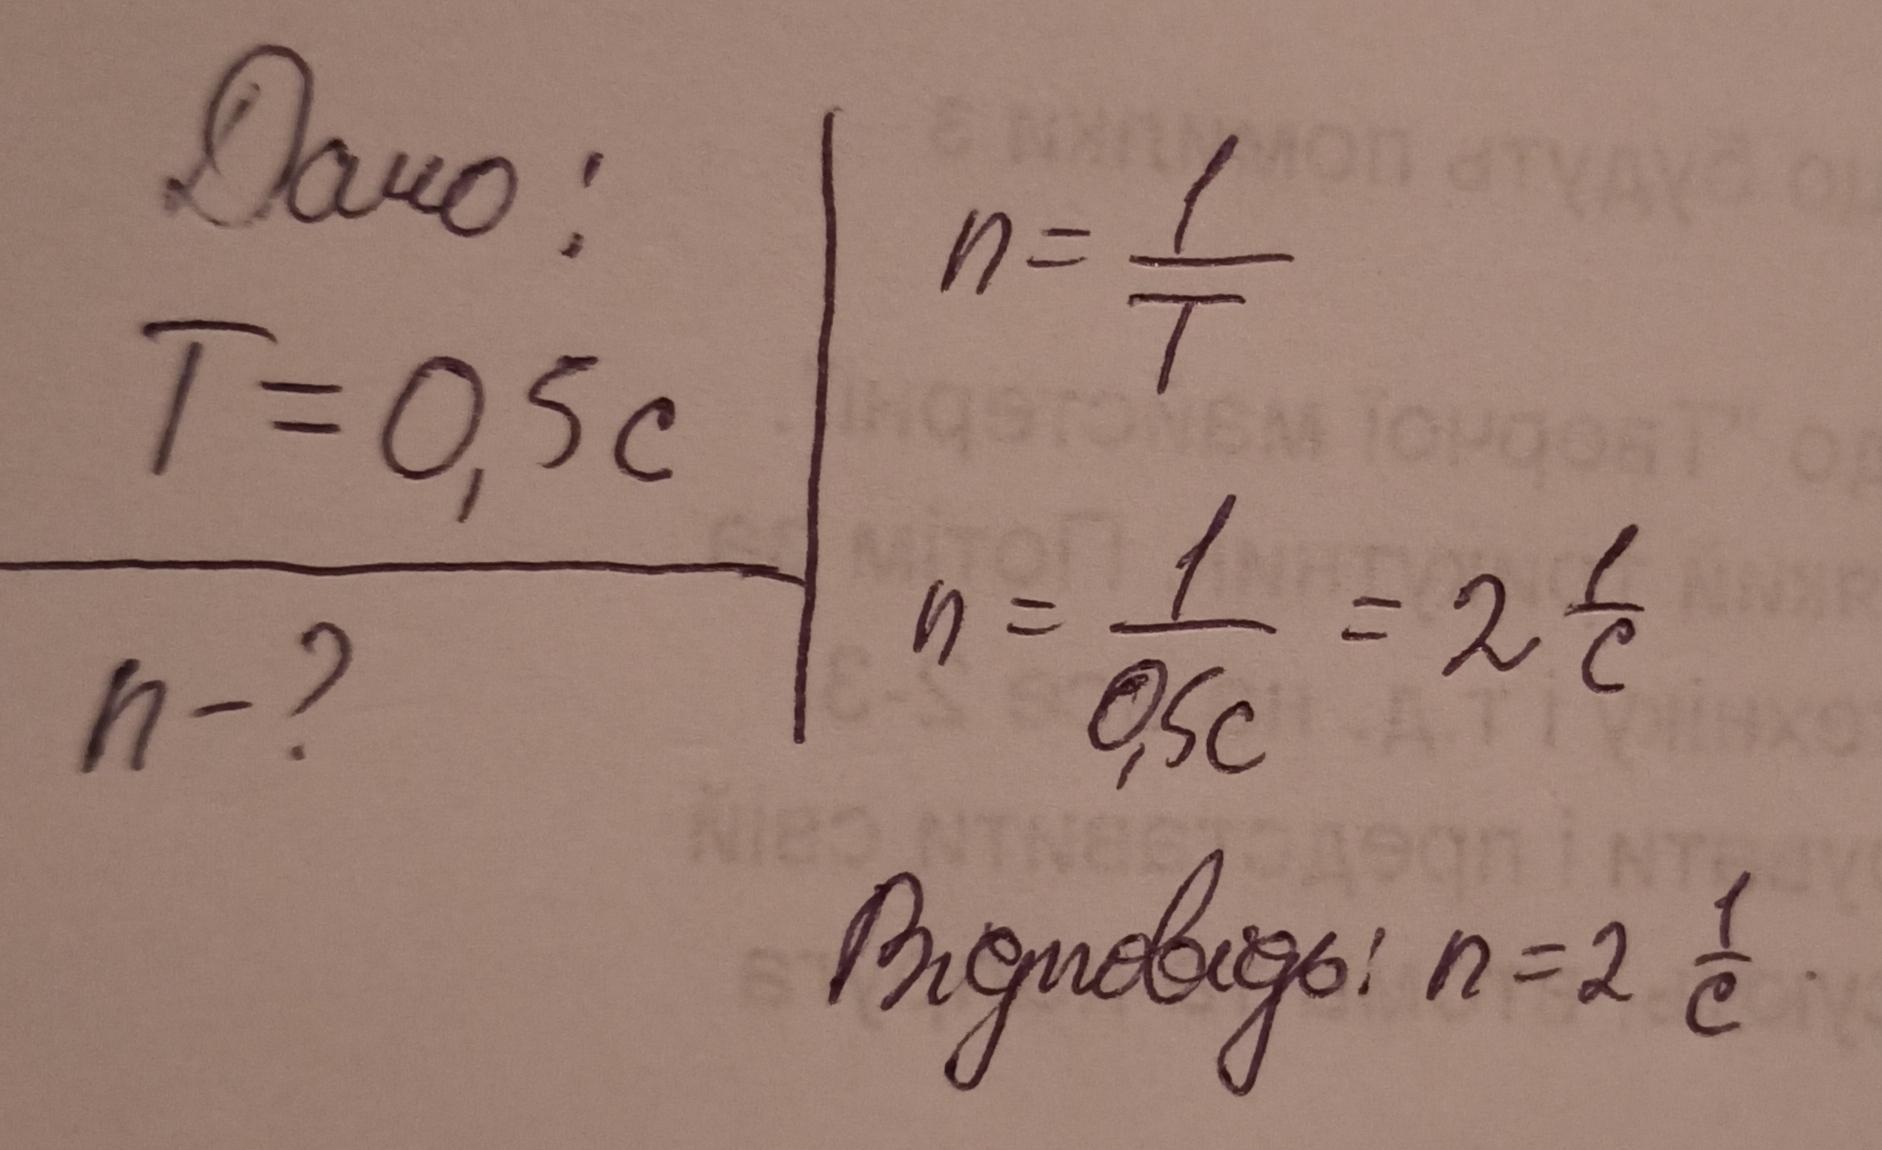 Дано:
T = 0,5 с
n - ?
n = 1/T
n = 1/0,5с = 2 1/с
Відповідь: n = 2 1/с